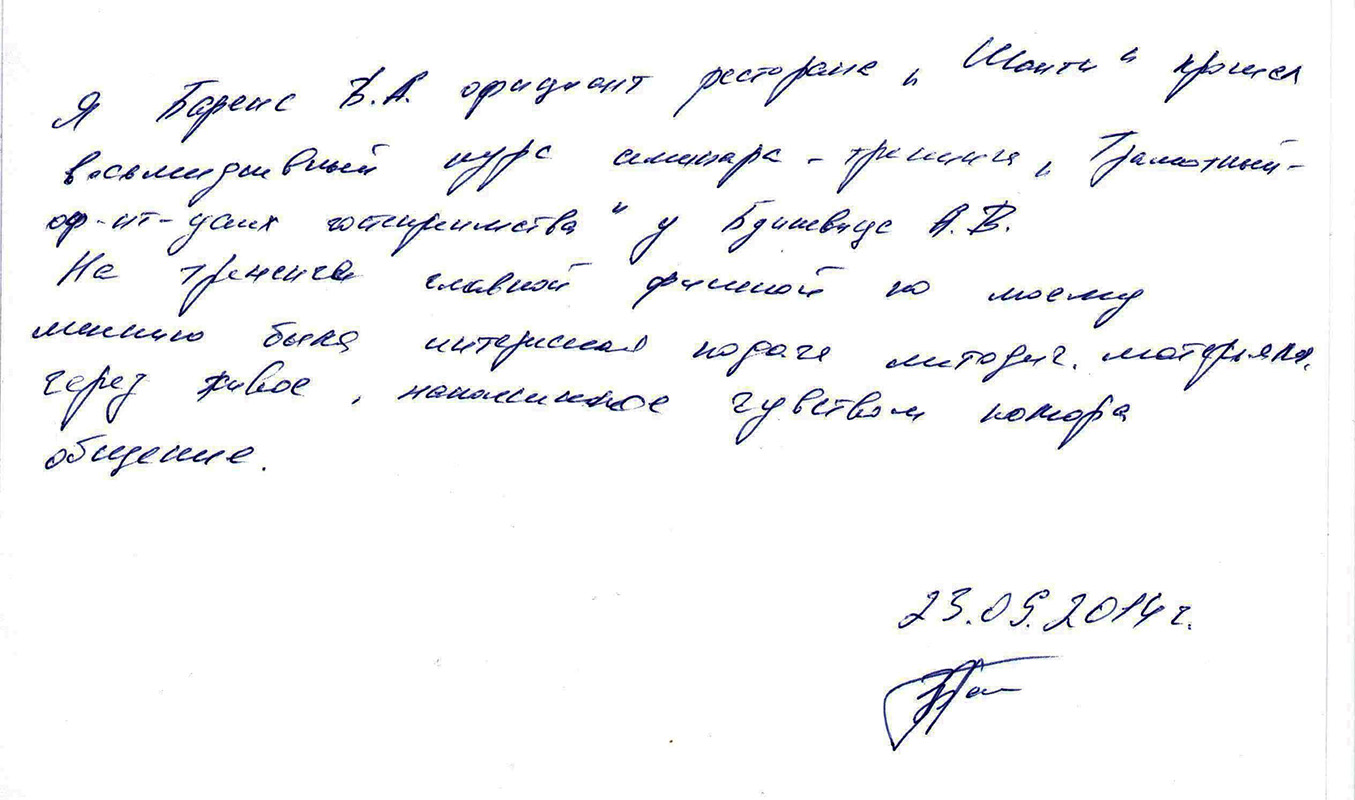 Я Баренс В.А. официант ресторана „Шанти“ прошел
восьмидневный курс семинара-тренинга „Грамотный-
оф-нт-успех гостеприимства“ у А.В.
На тренинге главной фишкой по моему
мнению была интересная подача методич. материала,
через живое, наполненное чувством юмора
общение.
23.09.2014 г.